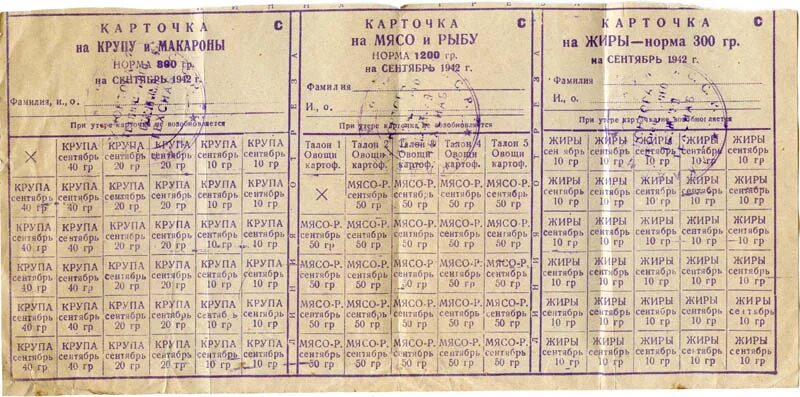 КАРТОЧКА С
на КРУПУ и МАКАРОНЫ
НОРМА 800 гр.
на СЕНТЯБРЬ 1942 г.
Фамилия, и., о.
При утере карточка не возобновляется
КРУПА КРУПА КРУПА КРУПА КРУПА
сентябрь сентябрь сентябрь сентябрь сентябрь
40 гр 20 гр 20 гр 10 гр 10 гр
КРУПА КРУПА КРУПА КРУПА КРУПА КРУПА
сентябрь сентябрь сентябрь сентябрь сентябрь сентябрь
40 гр 40 гр 20 гр 20 гр 10 гр 10 гр
КРУПА КРУПА КРУПА КРУПА КРУПА КРУПА
сентябрь сентябрь сентябрь сентябрь сентябрь сентябрь
40 гр 40 гр 20 гр 20 гр 10 гр 10 гр
КРУПА КРУПА КРУПА КРУПА КРУПА КРУПА
сентябрь сентябрь сентябрь сентябрь сентябрь сентябрь
40 гр 40 гр 20 гр 20 гр 10 гр 10 гр
КРУПА КРУПА КРУПА КРУПА КРУПА КРУПА
сентябрь сентябрь сентябрь сентябрь сентябрь сентябрь
40 гр 40 гр 20 гр 20 гр 10 гр 10 гр
КРУПА КРУПА КРУПА КРУПА КРУПА КРУПА
сентябрь сентябрь сентябрь сентябрь сентябрь сентябрь
40 гр 40 гр 20 гр 20 гр 10 гр 10 гр
КАРТОЧКА С
на МЯСО и РЫБУ
НОРМА 1200 гр.
на СЕНТЯБРЬ 1942 г.
Фамилия
И., о.
При утере карточка не возобновляется
Талон 1 Талон 2 Талон 3 Талон 4 Талон 5
Овощи Овощи Овощи Овощи Овощи
картоф. картоф. картоф. картоф. картоф.
МЯСО-Р. МЯСО-Р. МЯСО-Р. МЯСО-Р.
сентябрь сентябрь сентябрь сентябрь
50 гр 50 гр 50 гр 50 гр
МЯСО-Р. МЯСО-Р. МЯСО-Р. МЯСО-Р. МЯСО-Р.
сентябрь сентябрь сентябрь сентябрь сентябрь
50 гр 50 гр 50 гр 50 гр 50 гр
МЯСО-Р. МЯСО-Р. МЯСО-Р. МЯСО-Р. МЯСО-Р.
сентябрь сентябрь сентябрь сентябрь сентябрь
50 гр 50 гр 50 гр 50 гр 50 гр
МЯСО-Р. МЯСО-Р. МЯСО-Р. МЯСО-Р. МЯСО-Р.
сентябрь сентябрь сентябрь сентябрь сентябрь
50 гр 50 гр 50 гр 50 гр 50 гр
МЯСО-Р. МЯСО-Р. МЯСО-Р. МЯСО-Р. МЯСО-Р.
сентябрь сентябрь сентябрь сентябрь сентябрь
50 гр 50 гр 50 гр 50 гр 50 гр
КАРТОЧКА С
на ЖИРЫ—норма 300 гр.
на СЕНТЯБРЬ 1942 г.
Фамилия
И., о.
При утере карточка не возобновляется
ЖИРЫ ЖИРЫ ЖИРЫ ЖИРЫ ЖИРЫ
сентябрь сентябрь сентябрь сентябрь сентябрь
10 гр 10 гр 10 гр 10 гр 10 гр
ЖИРЫ ЖИРЫ ЖИРЫ ЖИРЫ ЖИРЫ
сентябрь сентябрь сентябрь сентябрь сентябрь
10 гр 10 гр 10 гр 10 гр 10 гр
ЖИРЫ ЖИРЫ ЖИРЫ ЖИРЫ ЖИРЫ
сентябрь сентябрь сентябрь сентябрь сентябрь
10 гр 10 гр 10 гр 10 гр 10 гр
ЖИРЫ ЖИРЫ ЖИРЫ ЖИРЫ ЖИРЫ
сентябрь сентябрь сентябрь сентябрь сентябрь
10 гр 10 гр 10 гр 10 гр 10 гр
ЖИРЫ ЖИРЫ ЖИРЫ ЖИРЫ ЖИРЫ
сентябрь сентябрь сентябрь сентябрь сентябрь
10 гр 10 гр 10 гр 10 гр 10 гр
ЖИРЫ ЖИРЫ ЖИРЫ ЖИРЫ ЖИРЫ
сентябрь сентябрь сентябрь сентябрь сентябрь
10 гр 10 гр 10 гр 10 гр 10 гр